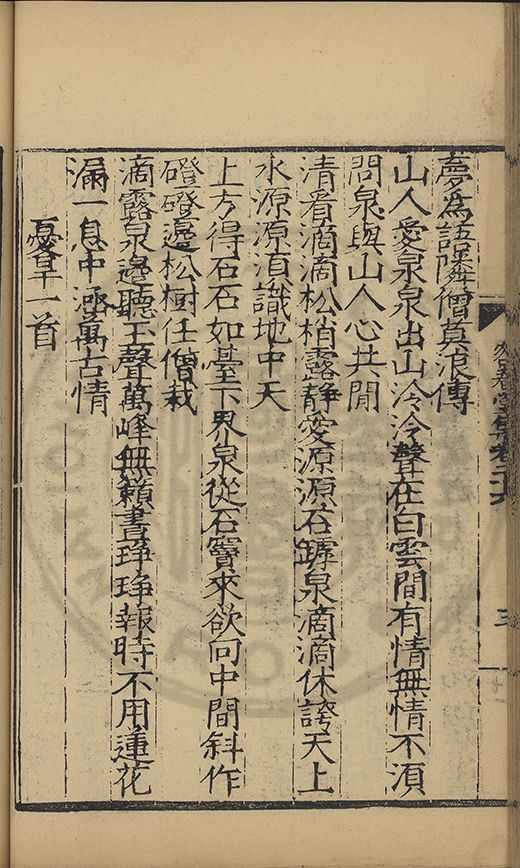 夢為語隣僧莫浪傳
山人愛泉泉出山泠泠聲在白雲間有情無情不須
問泉與山人心共閒
清看滴滴松梢露靜愛源源石罅泉滴滴休誇天上
水源源須識地中天
上方得石石如臺下界泉從石竇來欲向中間斜作
磴磴邊松樹任僧栽
滴露泉邊聽玉聲萬峰無籟晝琤琤報時不用蓮花
漏一息中涵萬古情
憂旱一首
卷二六
三